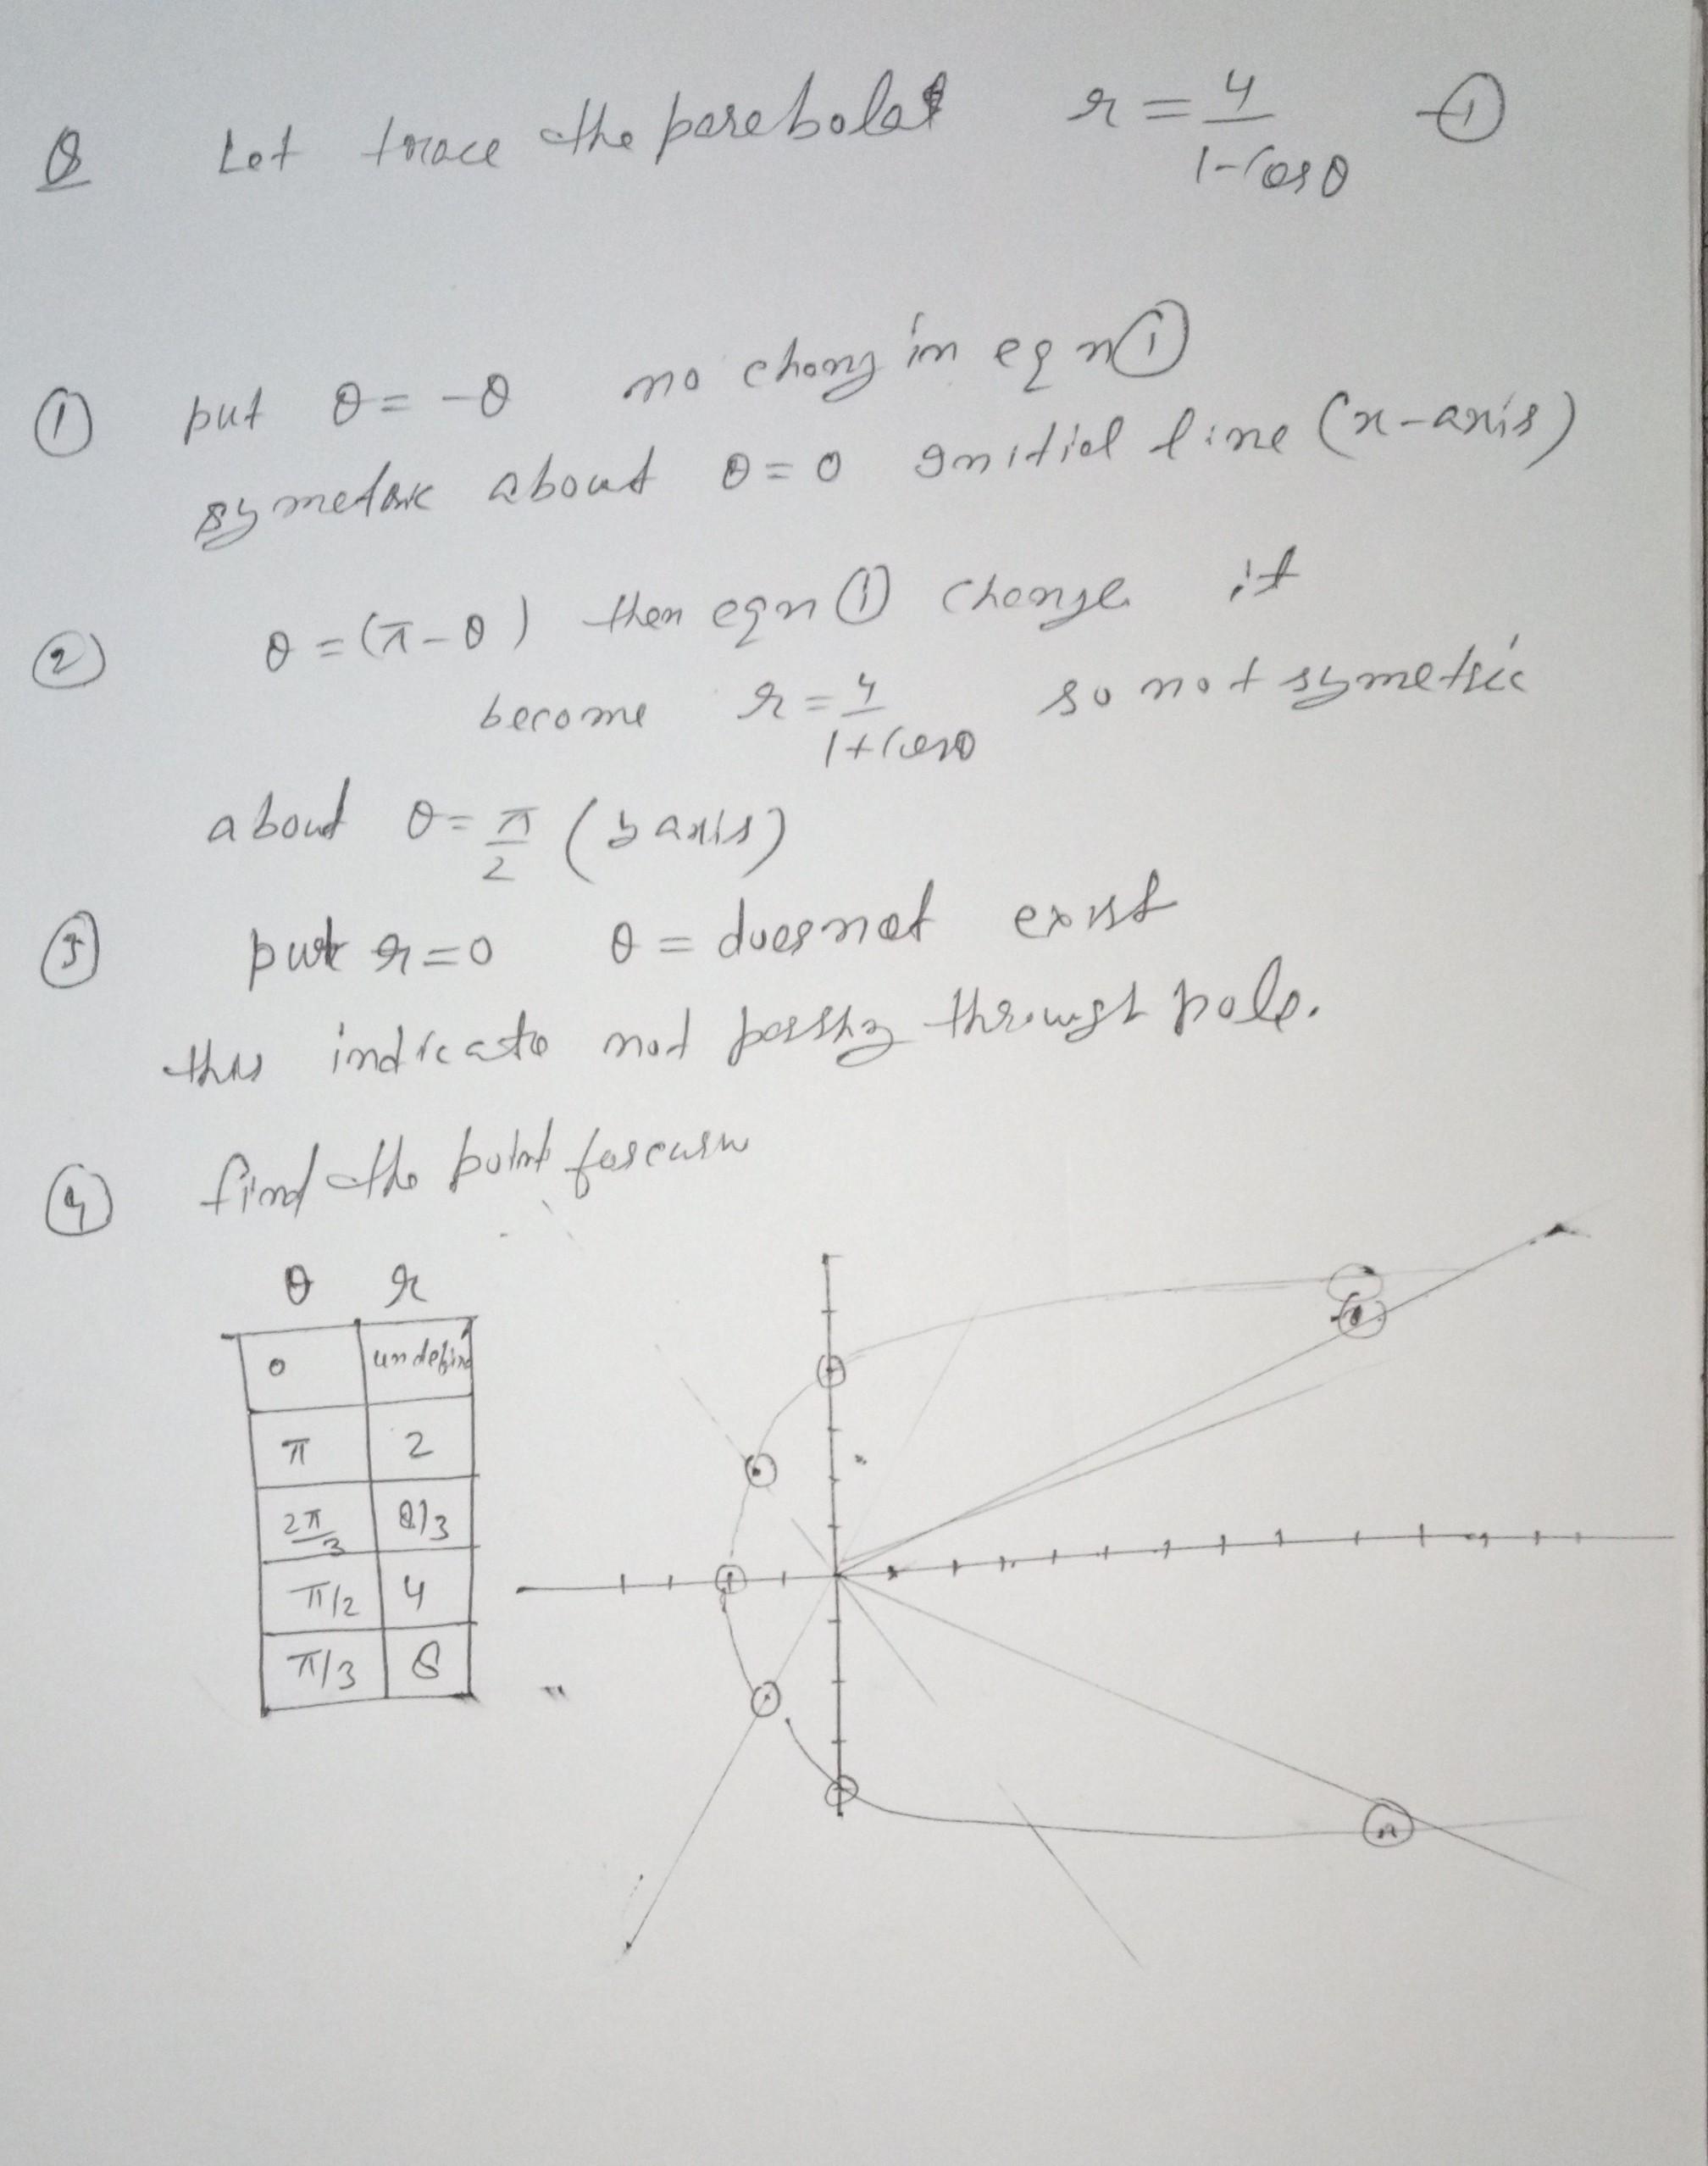 Q Let trace the parebola r = 4/1-Cosθ -①
① put θ = -θ no chang in eqn①
symetric about θ = 0 Initial line (x-axis)
② θ = (π-θ) then eqn ① change it
become r = 4/1+Cosθ so not symetric
about θ = π/2 (y axis)
③ put r = 0 θ = doesnot exist
this indicate not passing through pole.
④ find the point for curv
θ r
0 undefind
π 2
2π/3 8/3
π/2 4
π/3 8